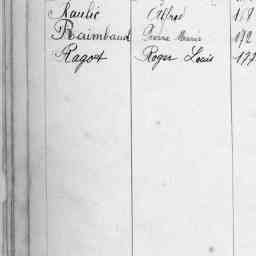 Raulic Alfred 1
Raimbaud Pierre Marie 172
Ragot Roger Louis 177